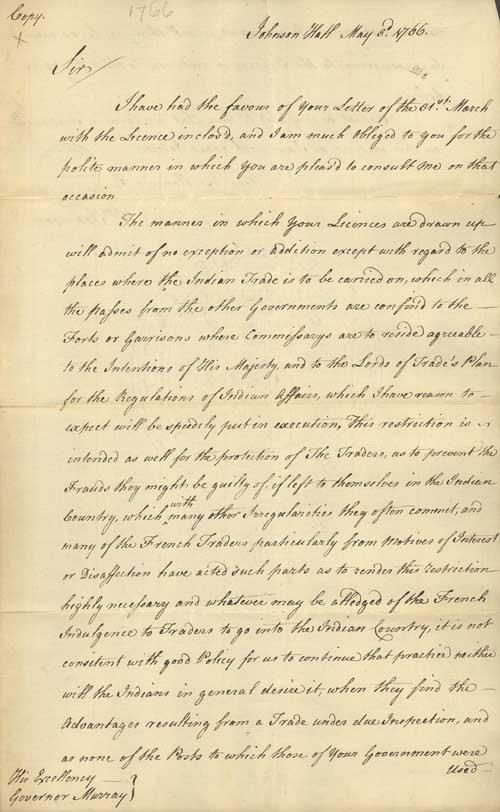 Copy.
1766
x
Johnson Hall May 3d. 1766.
Sir/
I have had the favour of Your Letter of the 31st. March
with the Licence inclosd, and I am much Obliged to you for the
polite manner in which You are pleasd to consult me on that
occasion
The manner in which Your Licences are drawn up
will admit of no exception or addition except with regard to the
places where the Indian Trade is to be carried on, which in all
the passes from the other Governments are confind to the
Forts or Garrisons where Commissarys are to reside agreeable
to the Intentions of His Majesty, and to the Lords of Trade's Plan
for the Regulations of Indian Affairs, which I have reason to
expect will be speedily put in execution, This restriction is
intended as well for the protection of The Traders, as to prevent the
Frauds they might be guilty of, if left to themselves in the Indian
Country, which with many other Irregularities they often commit, and
many of the French Traders particularly from Motives of Interest
or Disaffection have acted such parts as to render this restriction
highly necessary and whatever may be alledged of the French
Indulgence to Traders to go into the Indian Country, it is not
consistent with good Policy for us to continue that practice neither
will the Indians in general desire it, when they find the
Advantages resulting from a Trade under due Inspection, and
as none of the Posts to which those of Your Government were
used
His Excellency
Governor Murray}